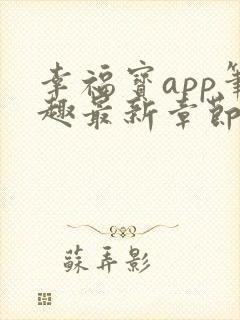 幸福寶app筆
趣最新章節
蘇弄影